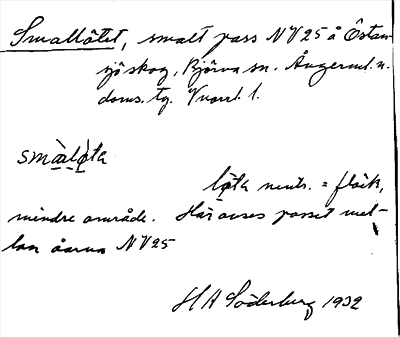 Smallötet, smalt pass NV 25 å Östan-
sjö skog, Björna sn. Ångerml. n.
doms. tg. 1.
smalöta
löta neutr. = fläck,
mindre område. Här avses passet mel-
lan åarna NV 25
H A Söderberg 1932